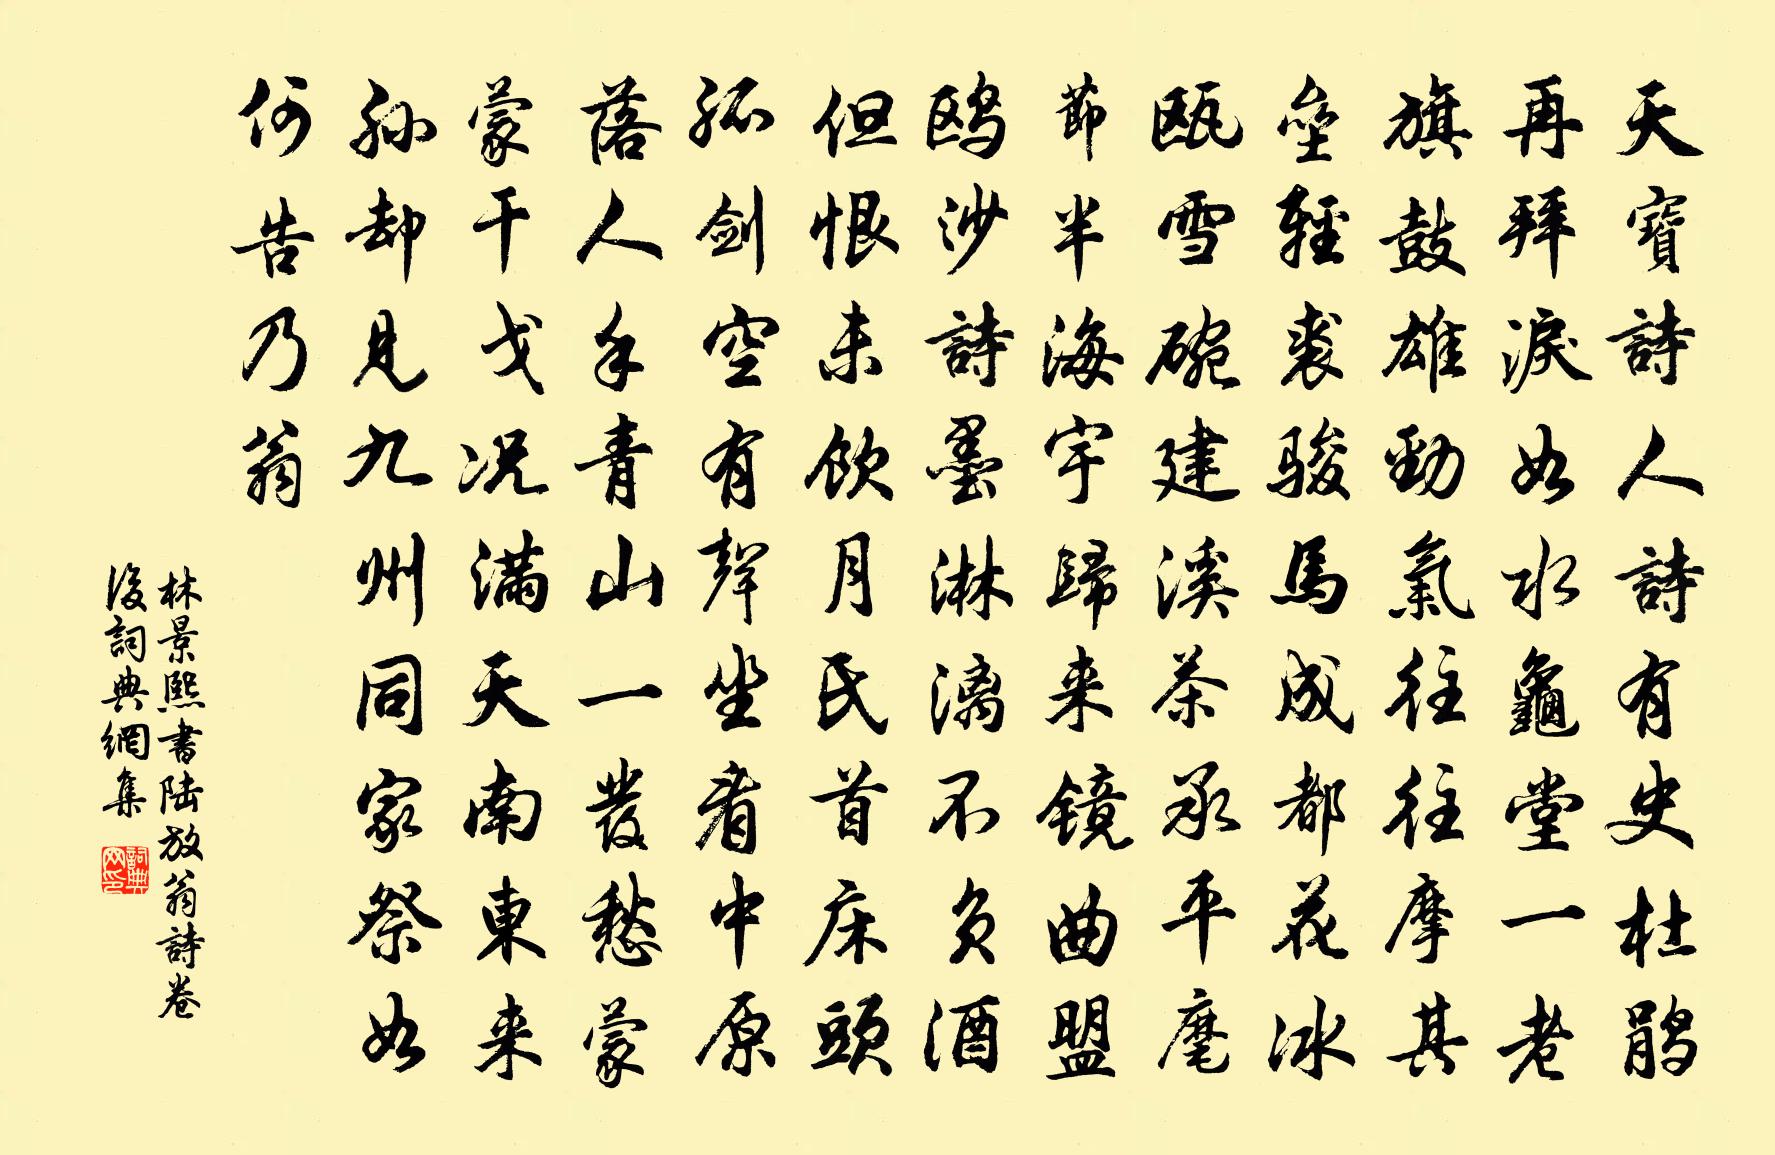 天寶詩人詩有史杜鵑
再拜淚如水龜堂一老
旗鼓雄勁氣往往摩其
壘輕裘駿馬成都花冰
甌雪碗建溪茶承平麾
節半海宇歸来鏡曲盟
鷗沙詩墨淋漓不負酒
但恨未飲月氏首床頭
孤劍空有聲坐看中原
落人手青山一發愁蒙
蒙干戈況满天南東来
孫却見九州同家祭如
何告乃翁
林景熙書陆放翁詩卷
後詞典網集
詞典网印